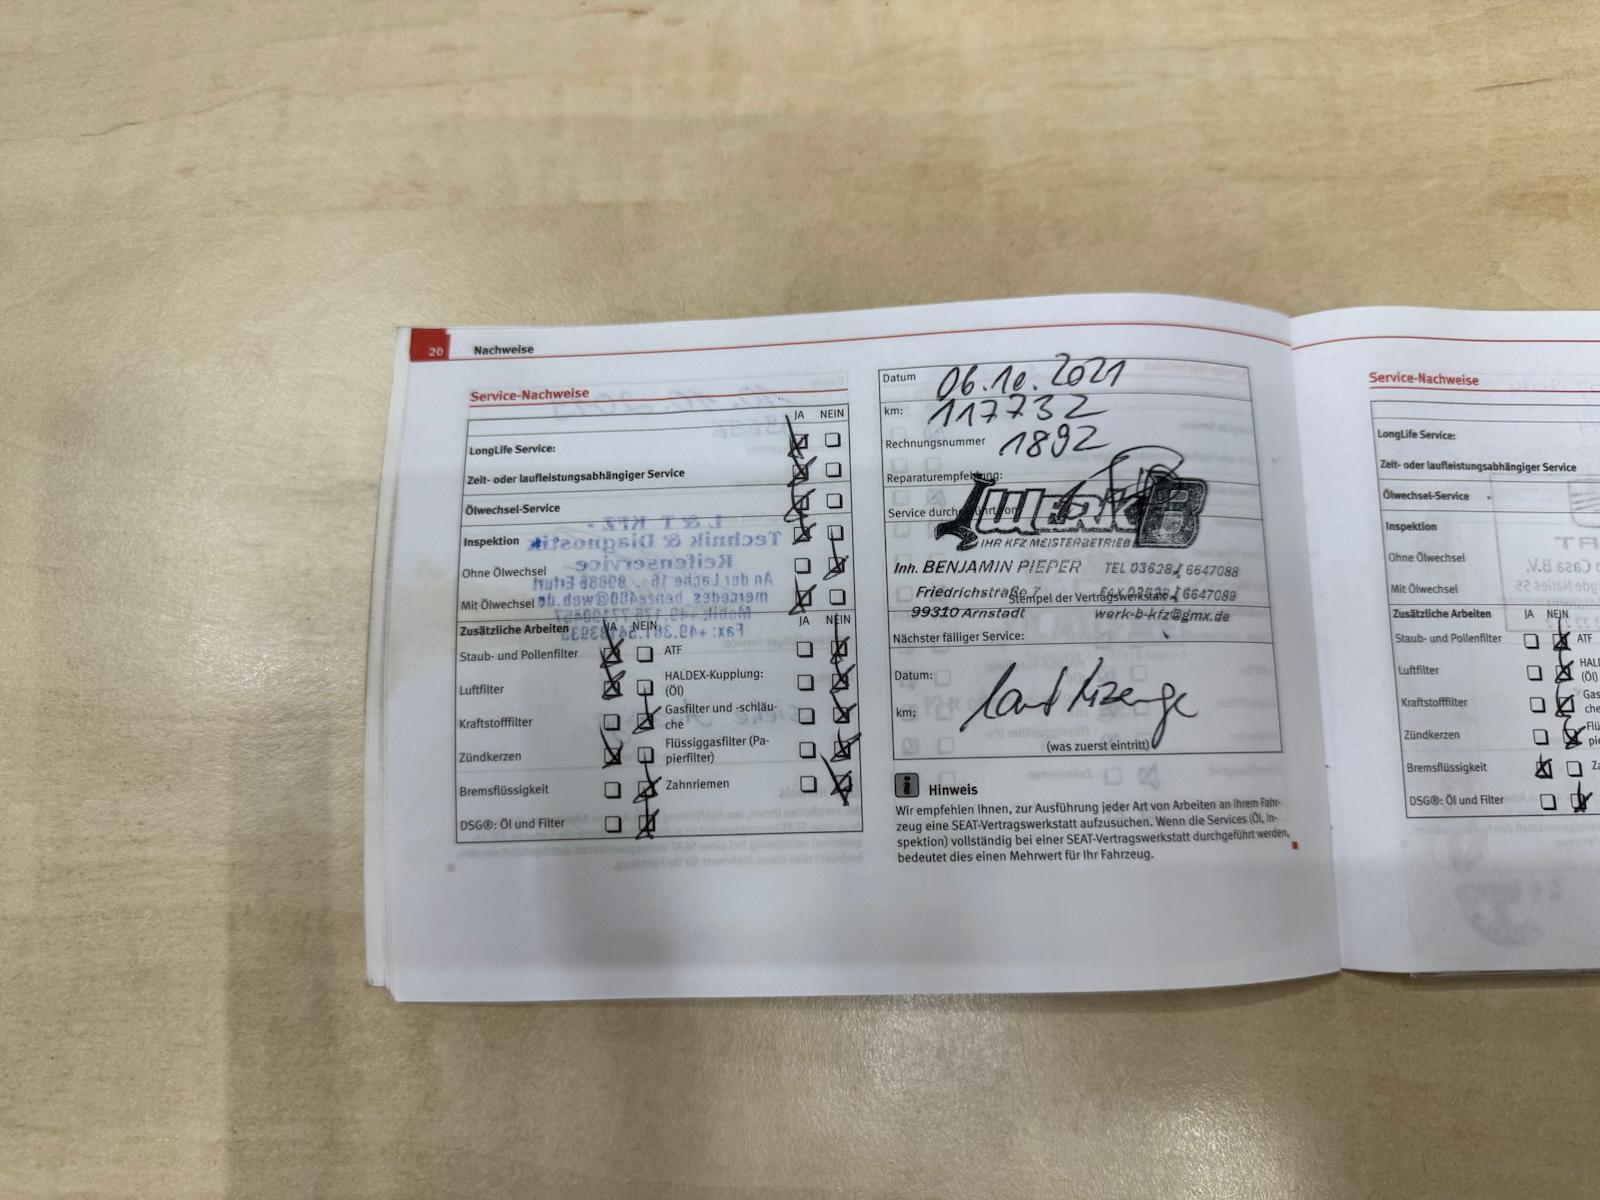 20 Nachweise
Service-Nachweise
JA NEIN
LongLife Service:
Zeit- oder laufleistungsabhängiger Service
Ölwechsel-Service
Inspektion
Ohne Ölwechsel
Mit Ölwechsel
Zusätzliche Arbeiten JA NEIN JA NEIN
Staub- und Pollenfilter
ATF
Luftfilter
HALDEX-Kupplung:
(Öl)
Kraftstofffilter
Gasfilter und -schläu-
che
Zündkerzen
Flüssiggasfilter (Pa-
pierfilter)
Bremsflüssigkeit
Zahnriemen
DSG®: Öl und Filter
Datum 06.10.2021
km: 117732
Rechnungsnummer 1892
Reparaturempfehlung:
Service durchgeführt von:
WERK B
IHR KFZ MEISTERBETRIEB
Inh. BENJAMIN PIEPER TEL 03628 / 6647088
Friedrichstraße 7 FAX 03628 / 6647089
Stempel der Vertragswerkstatt
99310 Arnstadt werk-b-kfz@gmx.de
Nächster fälliger Service:
Datum:
laut Anzeige
km:
(was zuerst eintritt)
i Hinweis
Wir empfehlen Ihnen, zur Ausführung jeder Art von Arbeiten an Ihrem Fahr-
zeug eine SEAT-Vertragswerkstatt aufzusuchen. Wenn die Services (Öl, In-
spektion) vollständig bei einer SEAT-Vertragswerkstatt durchgeführt werden,
bedeutet dies einen Mehrwert für Ihr Fahrzeug.
Service-Nachweise
LongLife Service:
Zeit- oder laufleistungsabhängiger Service
Ölwechsel-Service
Inspektion
Ohne Ölwechsel
Mit Ölwechsel
Zusätzliche Arbeiten JA NEIN
Staub- und Pollenfilter
ATF
Luftfilter
(Öl)
Kraftstofffilter
Zündkerzen
Bremsflüssigkeit
DSG®: Öl und Filter